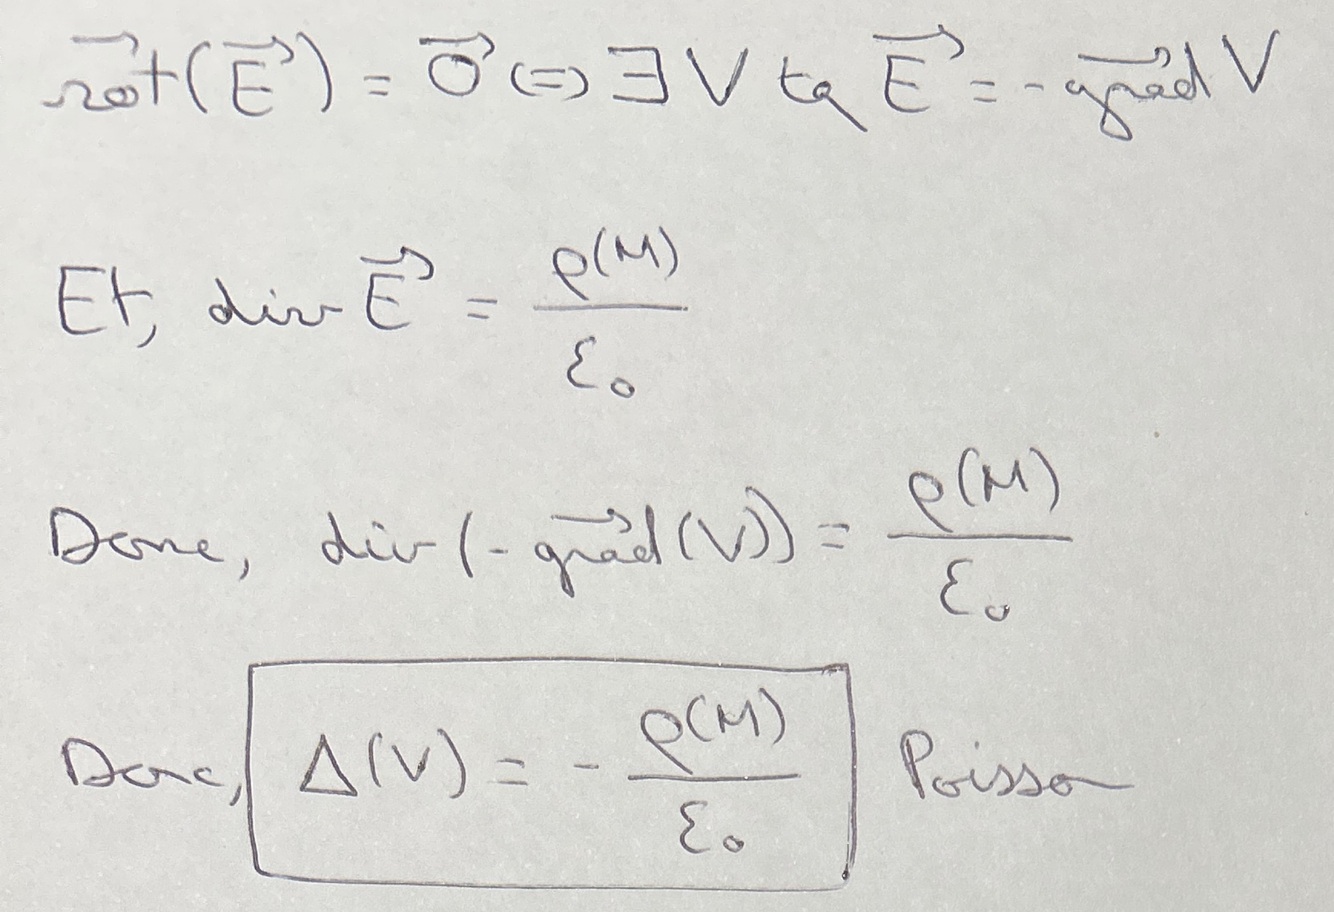 $\overrightarrow{rot}(\overrightarrow{E}) = \overrightarrow{0} \Leftrightarrow \exists V$ tq $\overrightarrow{E} = -\overrightarrow{grad} V$
Et, $div \overrightarrow{E} = \frac{\rho(M)}{\varepsilon_0}$
Donc, $div(-\overrightarrow{grad}(V)) = \frac{\rho(M)}{\varepsilon_0}$
Donc, $\boxed{\Delta(V) = -\frac{\rho(M)}{\varepsilon_0}}$ Poisson